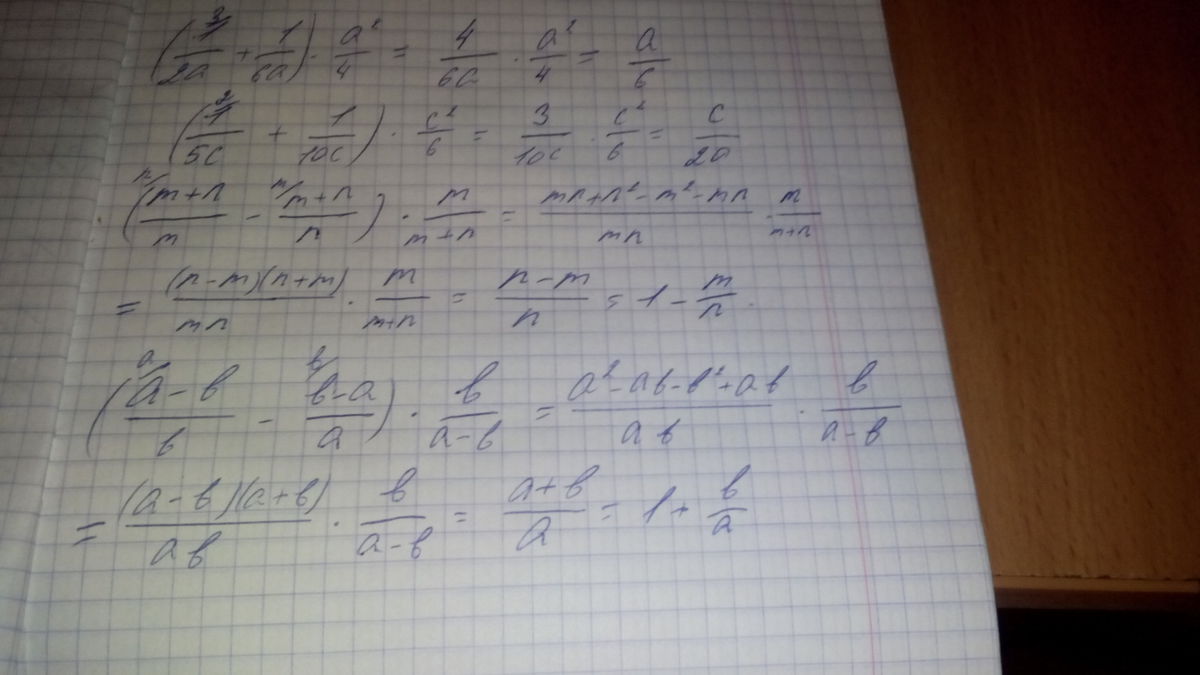 (³/1/2a + 1/6a) · a²/4 = 4/6a · a²/4 = a/6
(²/1/5c + 1/10c) · c²/6 = 3/10c · c²/6 = c/20
(ⁿ/m+n/m - ᵐ/m+n/n) · m/m+n = mn+n²-m²-mn/mn · m/m+n
= (n-m)(n+m)/mn · m/m+n = n-m/n = 1 - m/n.
(ᵃ/a-b/b - ᵇ/b-a/a) · b/a-b = a²-ab-b²+ab/ab · b/a-b
= (a-b)(a+b)/ab · b/a-b = a+b/a = 1 + b/a